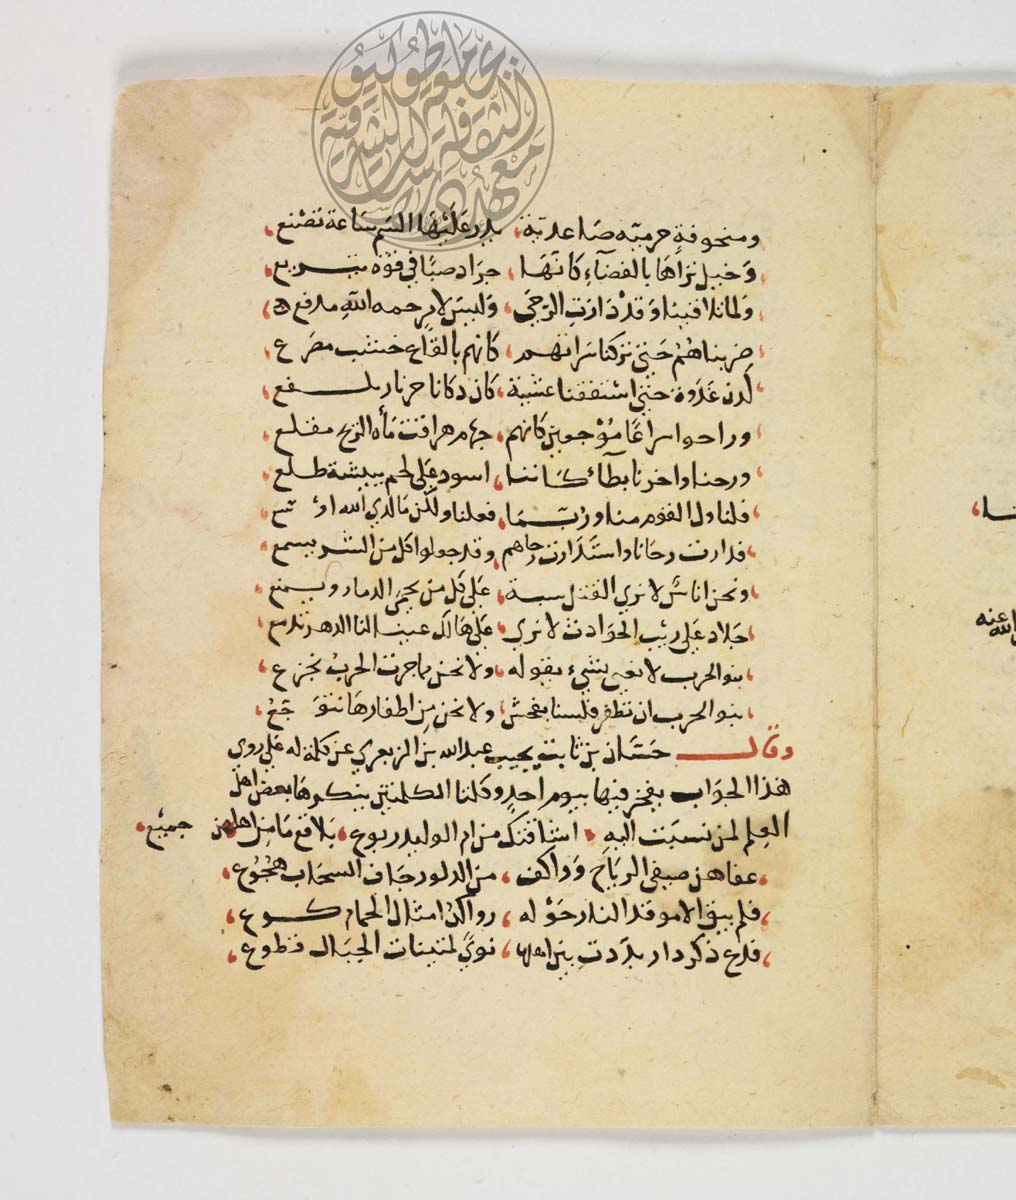 ومنحوفةٍ حرميّه صَاعديّة يذر عَلَيْهَا السّم سَاعة تصْنع
وَخيل نراهَا بالفضآء كانّهَا جراد صبًا في قرّه يتريع
وَلما تلاقينا وَقدْ دَارتِ الرّحَى وَليسَ لامرٍ حمه اللهِ مدفع
ضربناهُمْ حَتىَ تركنا سراتهم كانهم بالقَاع خشب مصرع
لَدن غدَوة حَتى اسْتفقنا عشية كان ذكانا حر نار تلفع
وراحوا سراعًا مُوْجعين كانهم جهام هراقت مآه الريح مقلع
ورحنا واخرنا بطآء كاننا اسود عَلى لحم ببيشة طلع
فنلنا ونال القوم منا وربّما فعلنا ولكن مَا لدي الله اوسع
فدارت رحانا واستدارت رحاهم وقد جعلوا كل من الشر يسبع
ونحن اناسٌ لا نري القتل سبة عَلى كل من يحمى الدمار ويمنع
جلاد عَلى ريْب الحَوادث لا نري عَلى هَالك عينا لنا الدهر تدمع
بنو الحرب لا نعى بشيء نقوله ولا نحن مما جرت الحربُ نجزع
بنو الحرب ان نظفر فلسنا بفحش ولا نحن مِن اظفارهَا نتوجّعُ
وقال حَسّان بن ثابت يجيب عبد الله بن الزبعري عن كلمة له عَلى روي
هَذا الجَواب يفخر فيها بيوم احدٍ وكلتا الكلمتين ينكرهَا بعض اهل
العِلم لمن نسبَت اليه اشاقتك من ام الوليد ربوع بلاقع مَا من اهلهن جميع
عفاهن صيفى الريَاحَ وَواكف من الدلو رجاف السحَاب هَمُوع
فلم يبق الا موقد النار حَوْله رواكن امثال الحمام كنوع
فدع ذكر دار بدّدت بين اهلها نوًي لمتينات الحبال قطوع
الله عنه